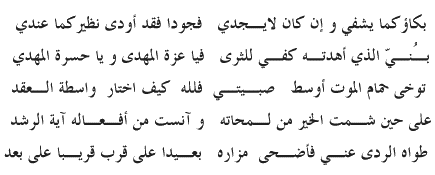 بكاؤكما يشفي و إن كان لايجدي فجودا فقد أودى نظيركما عندي
بُنيّ الذي أهدته كفي للثرى فيا عزة المهدى و يا حسرة المهدي
توخى حمام الموت أوسط صبيتي فلله كيف اختار واسطة العقد
على حين شمت الخير من لمحاته و آنست من أفعاله آية الرشد
طواه الردى عني فأضحى مزاره بعيدا على قرب قريبا على بعد